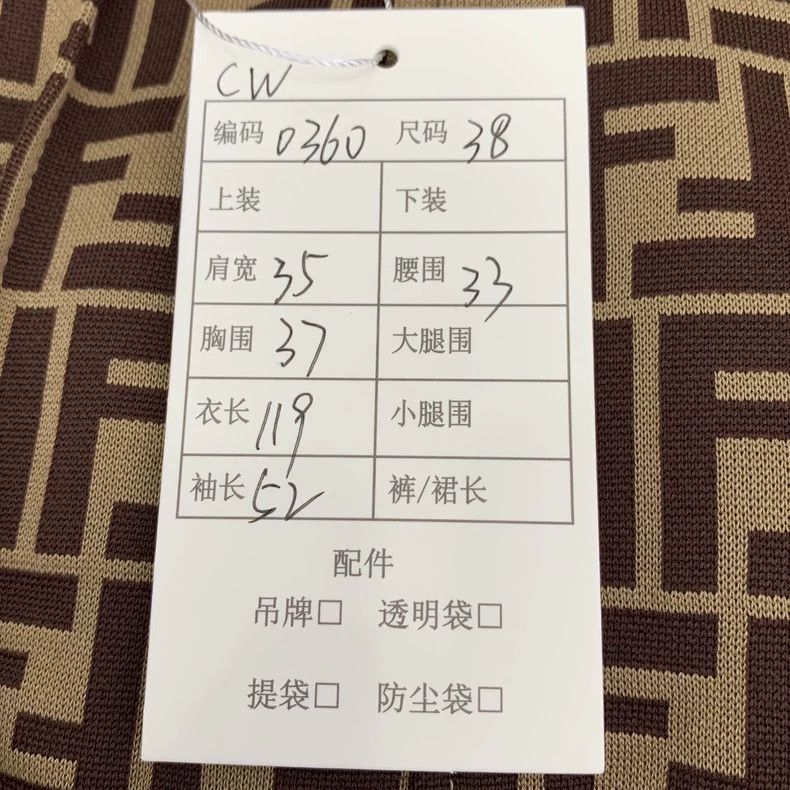 CW
编码 0360 尺码 38
上装 下装
肩宽 35 腰围 33
胸围 37 大腿围
衣长 119 小腿围
袖长 52 裤/裙长
配件
吊牌□ 透明袋□
提袋□ 防尘袋□